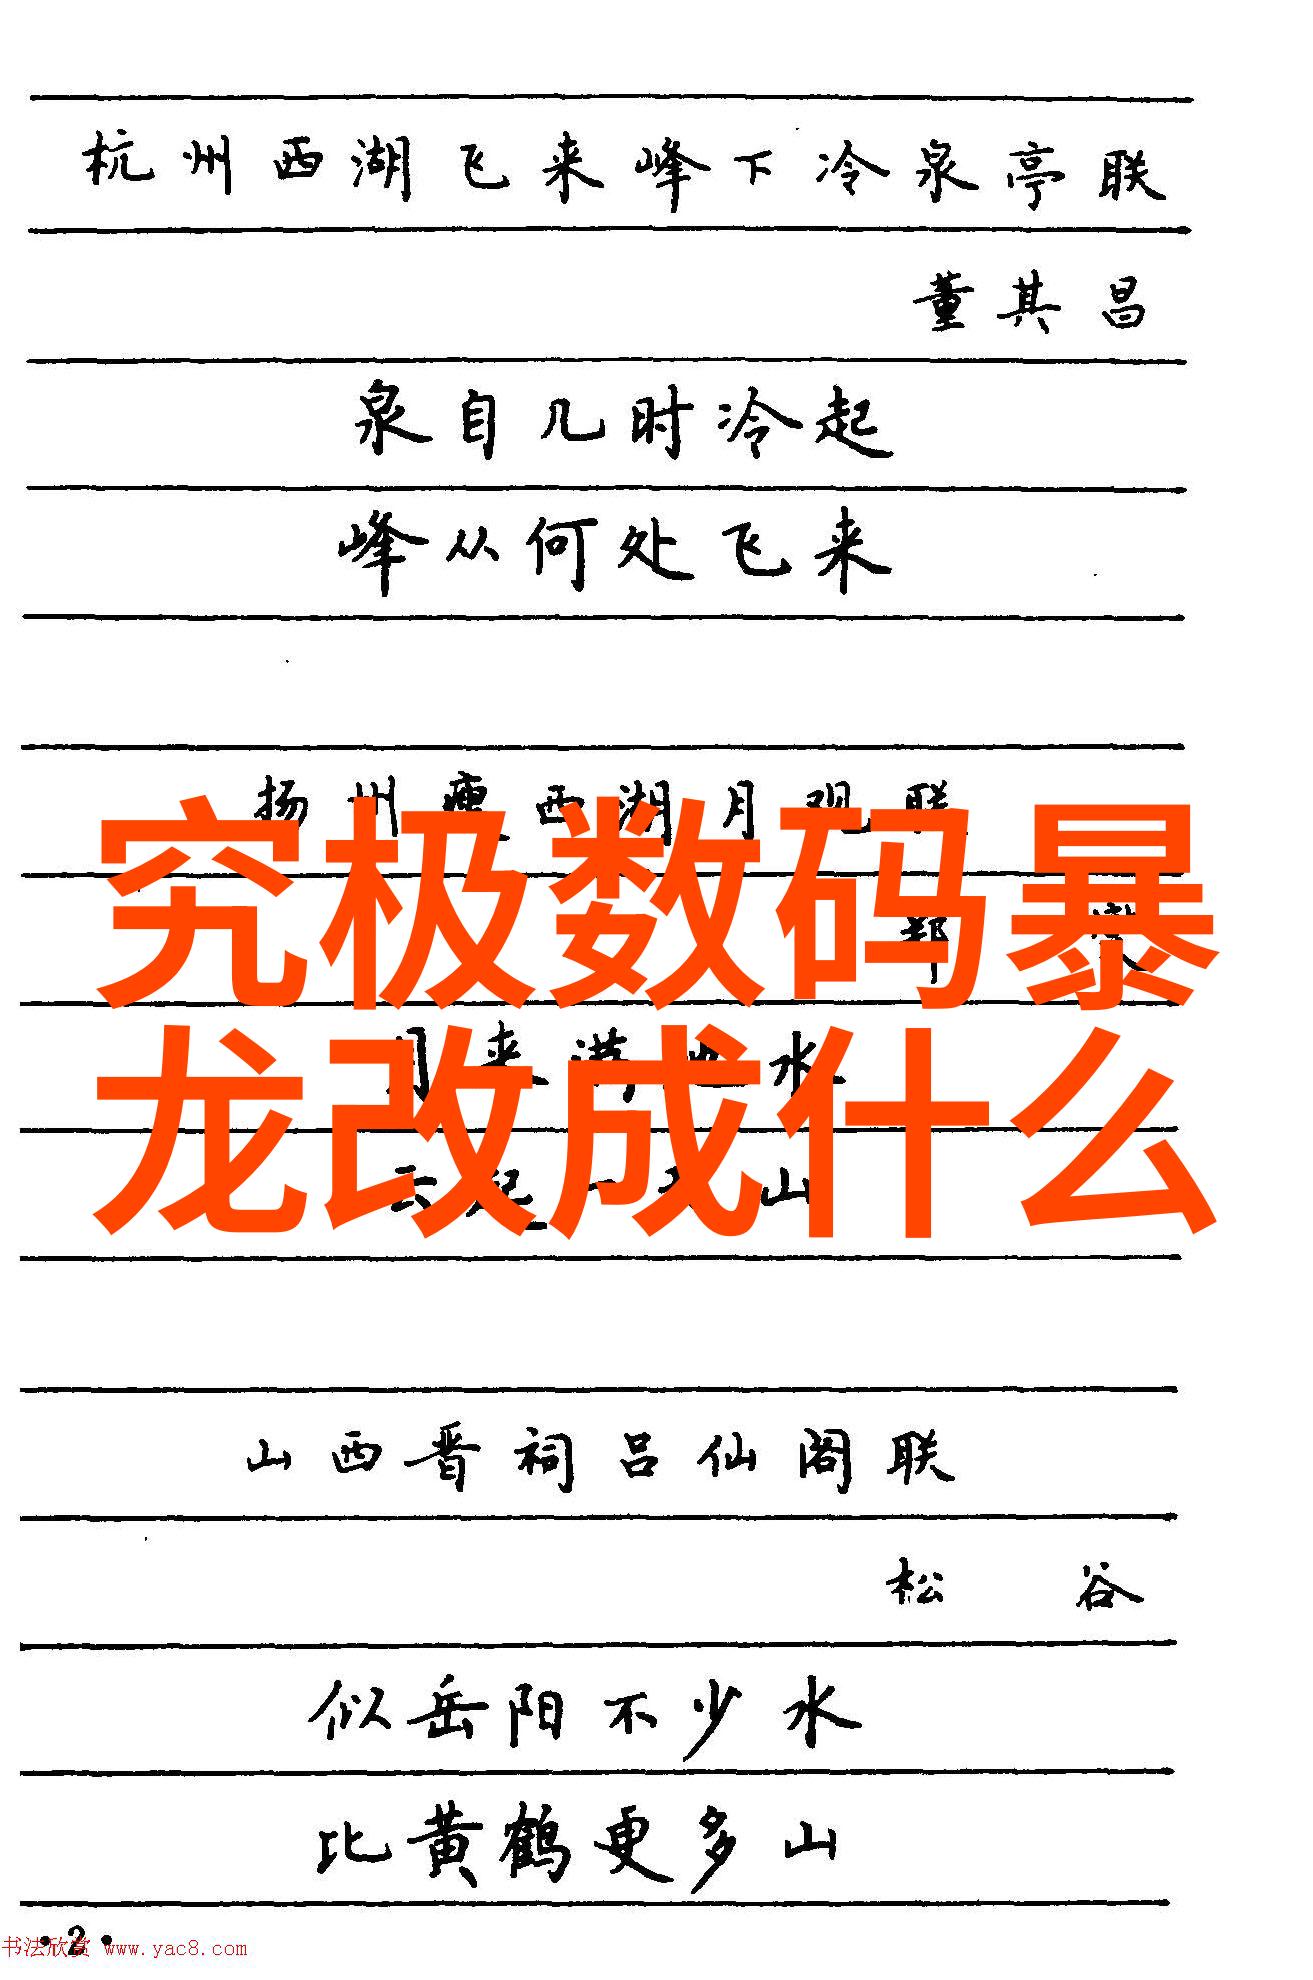 杭州西湖飞来峰下冷泉亭联
董其昌
泉自几时冷起
峰从何处飞来
扬州瘦西湖月观联
郑
究极数码暴
月来满地水
龙改成什么
云起一天山
山西晋祠吕仙阁联
松谷
似岳阳不少水
比黄鹤更多山
·2·
书法欣赏 www.yac8.com